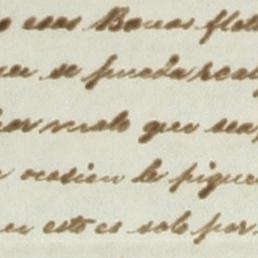 esas Bonas flot
se pueda real
por malo que sea
ocasion le pique
en esto es solo por